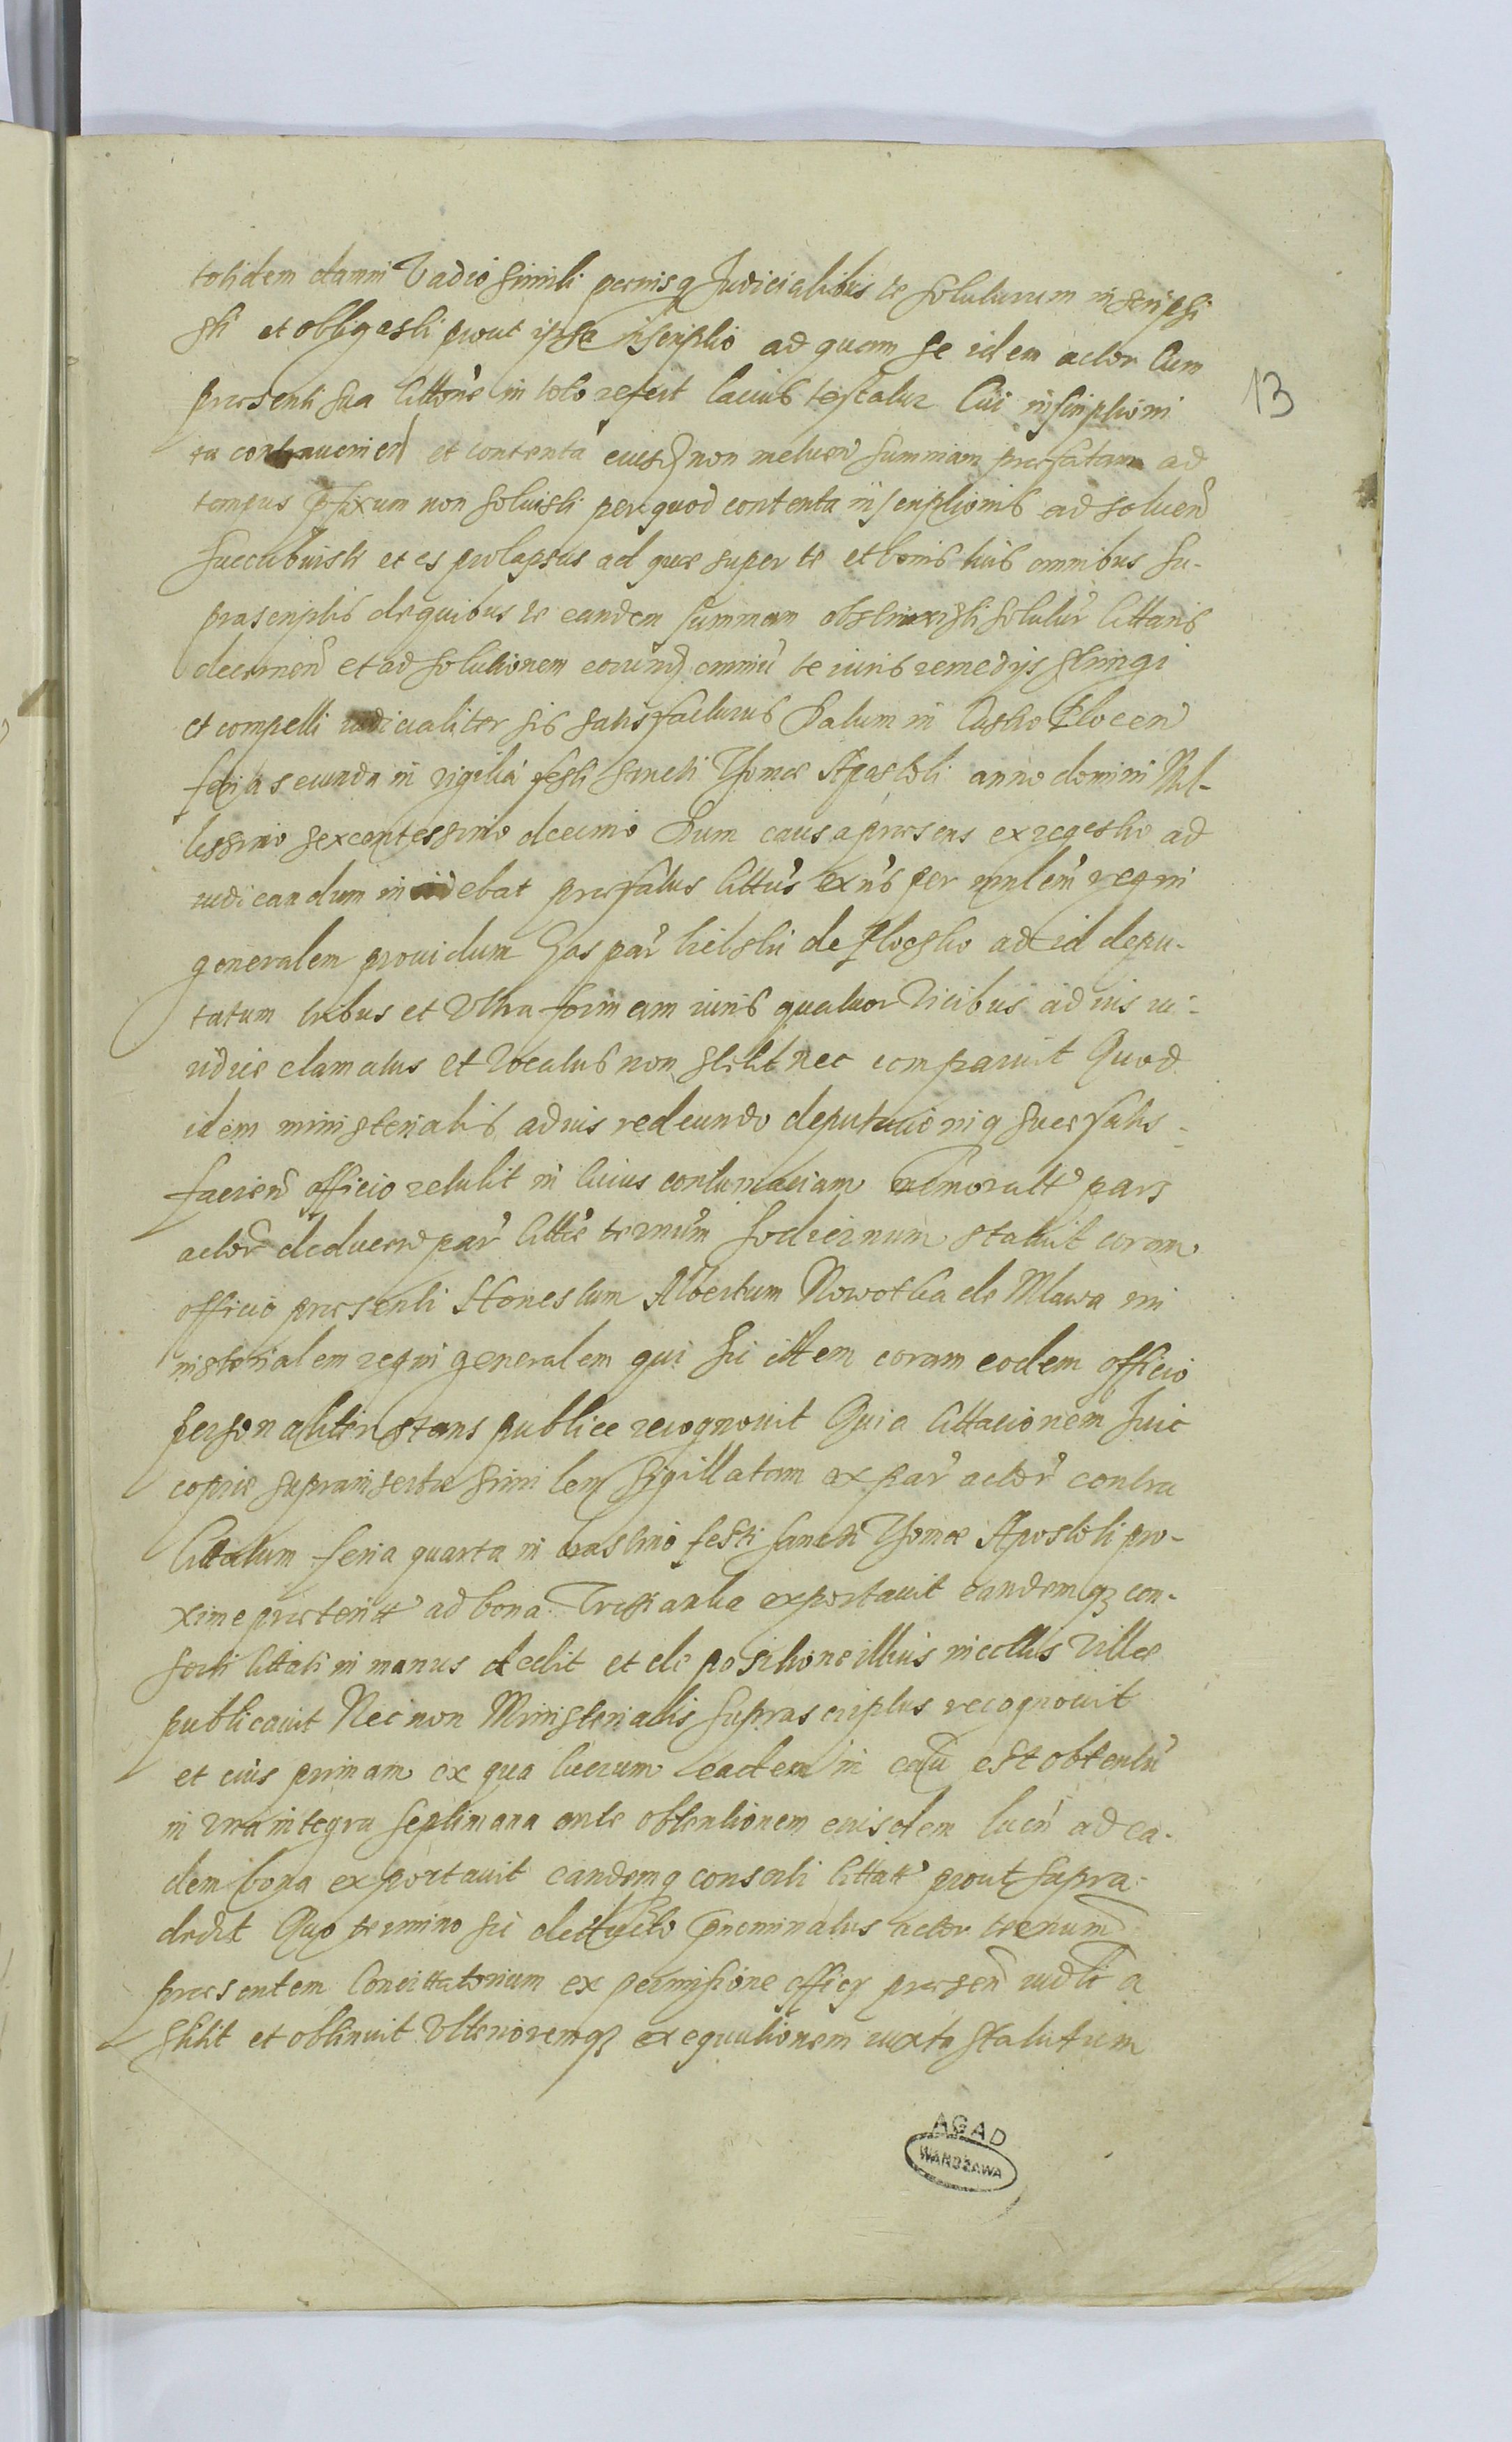 totidem damni Vadio simili poenisq Judicialibus te soluturum inscripsi
sti et obligasti prout ipsa inscriptio ad quam se idem actor Cum
praesenti sua Cittone in toto refert lacius testatur Cui inscriptioni
tu contravenien et contenta eiusd non metuen summam praefatam ad
tempus pfixum non soluisti per quod contenta inscriptionis ad soluen
succubuisti et es prolapsus ad quae super te et bonis tuis omnibus su-
prascriptis de quibus te eandem summam obstrinxisti solutur Cittaris
decernen et ad solutionem eorund omniu te iuris remedijs stringi
et compelli iudicialiter sis satisfacturus Datum in Castro Plocen
feria secunda in vigilia festi sancti Thomae Apostoli anno domini Mil-
lessimo sexcentessimo decimo Dum causa praesens ex regestro ad
iudicandum incidebat praefatus Cittus exns per mnlem regni
generalem providum Gaspar de Plocsko ad id depu-
tatum tribus et Ultra formam iuris quatuor Vicibus ad ius iu-
ridice clamatus et Vocatus non stitit nec comparuit Quod
idem ministerialis ad ius redeundo deputacioniq suae satis-
facien officio retulit in Cuius contumaciam memorat pars
actor deducen par Citte termum hodiernum statuit coram
officio praesenti Honestum Albertum Nowotka de Mlawa mi
nisterialem regni generalem qui sic item coram eodem officio
personaliter stans publice recognovit Quia Cittacionem huic
copiae suprainsertae similem sigillatam ex par actor contra
Cittatum feria quarta in crastino festi sancti Thomae Apostoli pro-
xime praeterit ad bona exportavit eandemqz con-
sorti Cittati in manus dedit et de positione illius incollis Villae
publicavit Nec non Ministerialis suprascriptus recognovit
et eius primam ex qua lucrum eadem in cau est obtentu
in Una integra septimana ante obtentionem eiusdem lucri ad ea-
dem bona exportavit eandemq consorti Cittat prout supra-
dedit Quo termino sic pnominatus actor termum
praesentem Concittatorium ex permissione officy praesen iudli a
stitit et obtinuit Ulterioremqz exequutionem iuxta statutum
13
AGAD
WARSZAWA